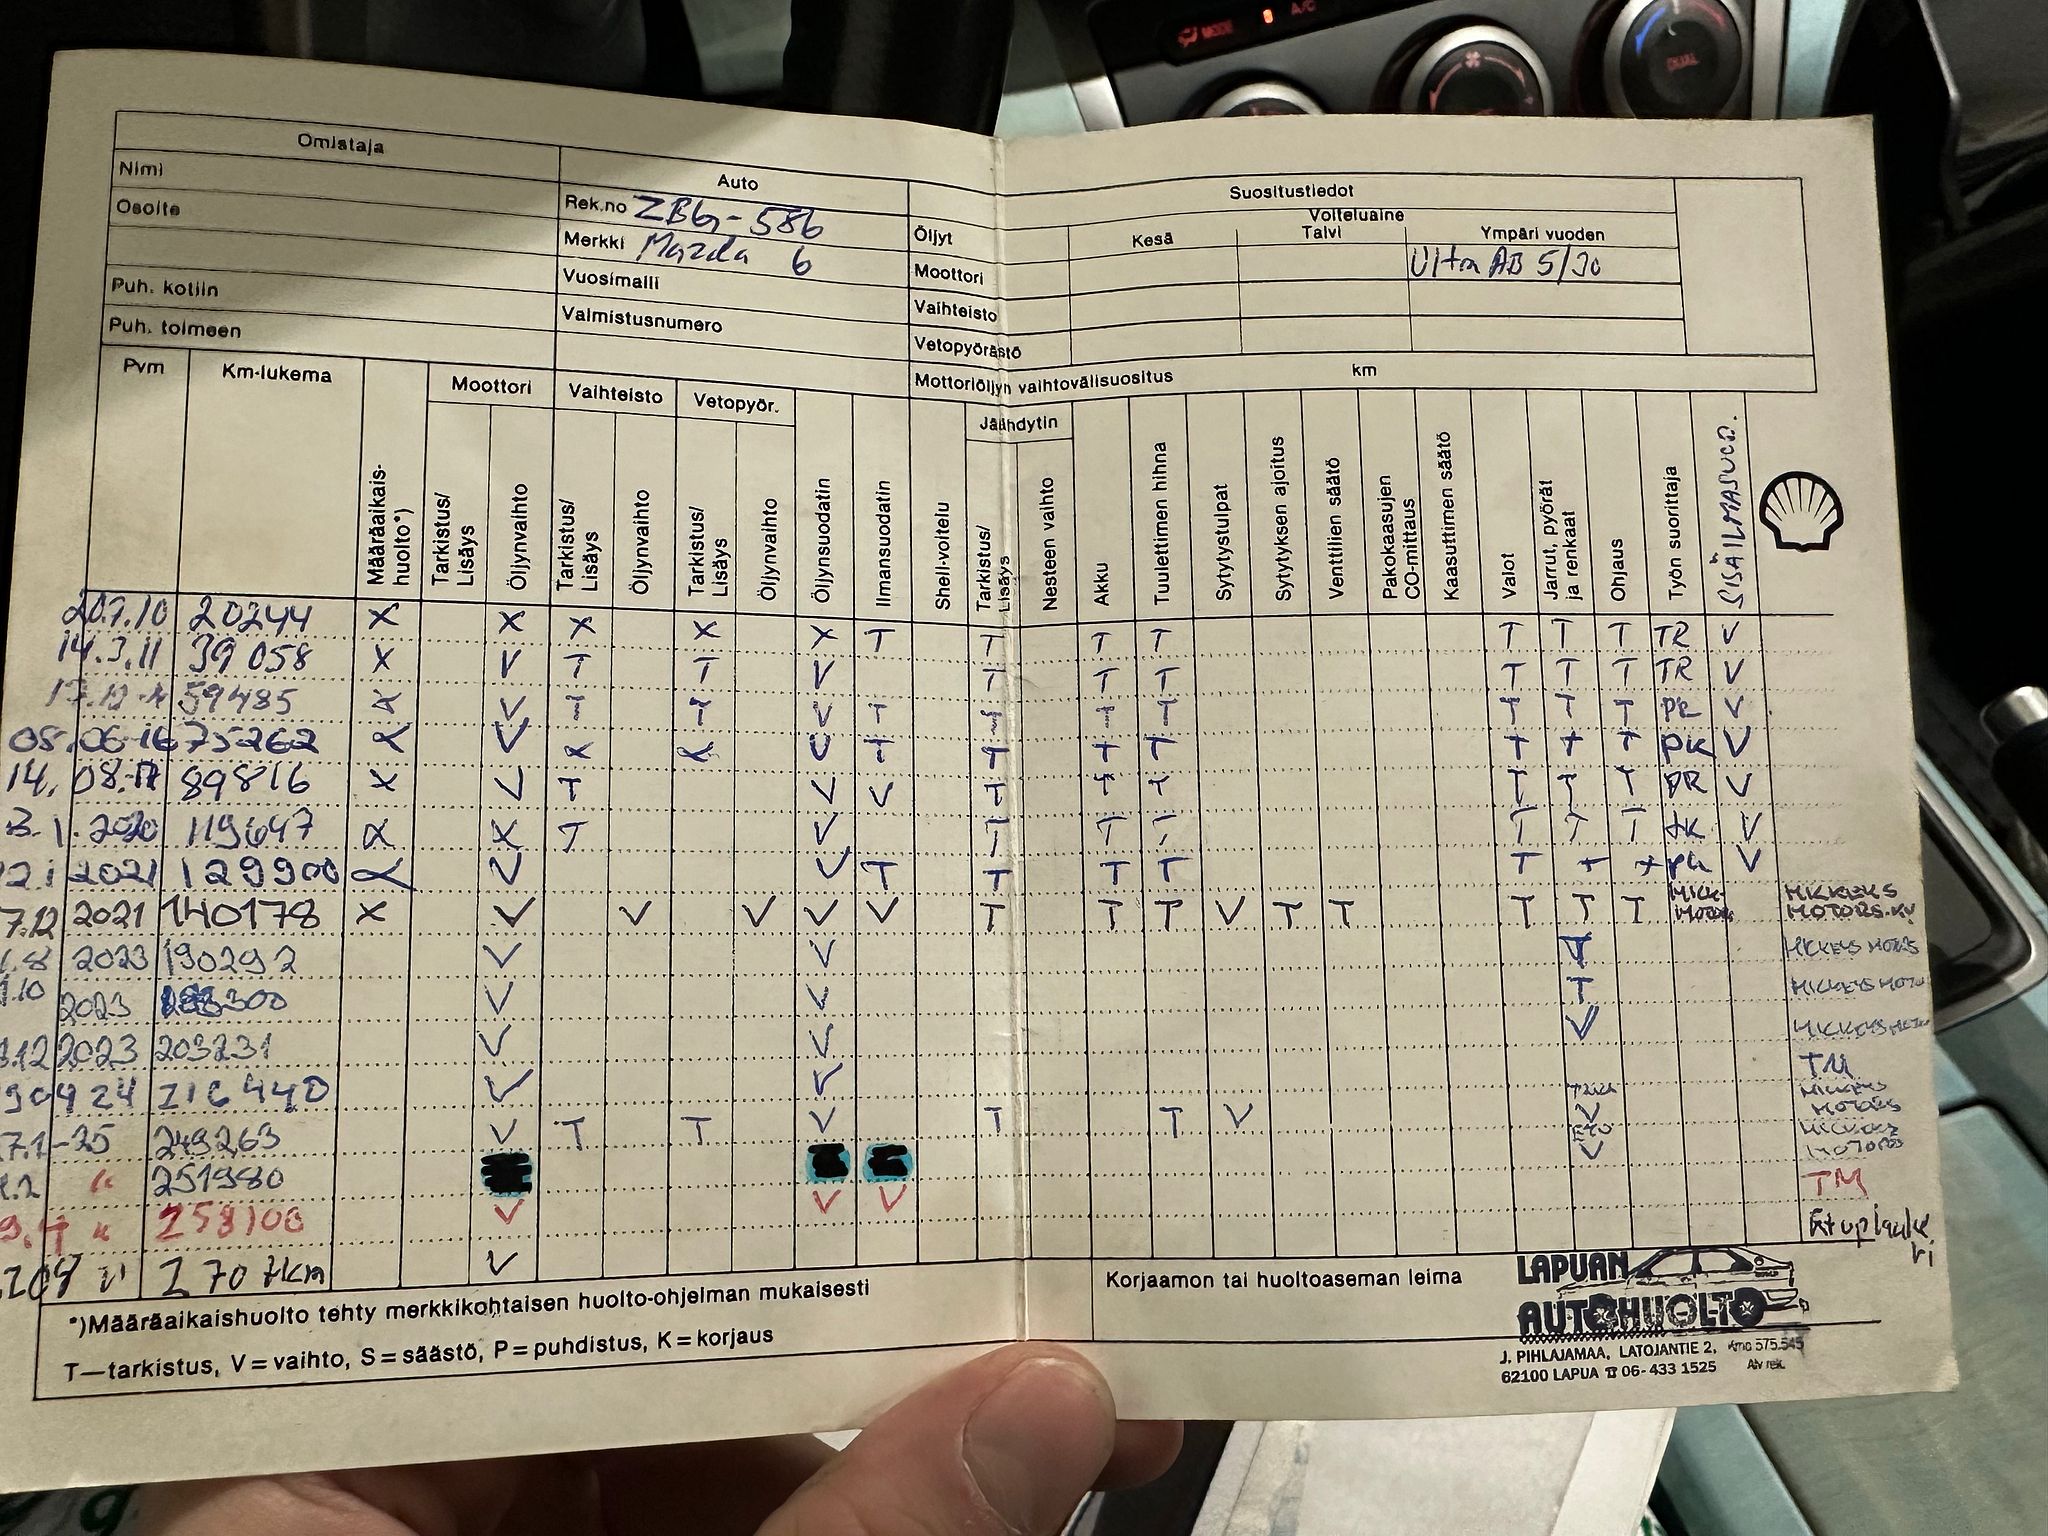 MODE A/C
DUAL
Omistaja
Nimi
Osoite
Puh. kotiin
Puh. toimeen
Auto
Rek.no ZBG-586
Merkki Mazda 6
Vuosimalli
Valmistusnumero
Suositustiedot
Voiteluaine
Öljyt Kesä Talvi Ympäri vuoden
Moottori Ultra AB 5/30
Vaihteisto
Vetopyörästö
Mottoriöljyn vaihtovälisuositus km
Pvm Km-lukema Moottori Vaihteisto Vetopyör. Jäähdytin
Määräaikais-
huolto*)
Tarkistus/
Lisäys
Öljynvaihto
Tarkistus/
Lisäys
Öljynvaihto
Tarkistus/
Lisäys
Öljynvaihto
Öljynsuodatin
Ilmansuodatin
Shell-voitelu
Tarkistus/
Lisäys
Nesteen vaihto
Akku
Tuulettimen hihna
Sytytystulpat
Sytytyksen ajoitus
Venttilien säätö
Pakokaasujen
CO-mittaus
Kaasuttimen säätö
Valot
Jarrut, pyörät
ja renkaat
Ohjaus
Työn suorittaja
SISÄILMASUOD.
20.7.10 20244 X X X X X T T T T T T T TR V
14.3.11 39 058 X V T T V T T T T T T TR V
59485 X V T T V T T T T T T T V
05.06-16 75262 X V X X V T T T T T T T PK V
14.08.17 89816 X V T V V T T T T T T PR V
3.1.2020 119647 X X T V T T T T T T V
2.1 2021 129900 X V V T T T T T T T V
7.12 2021 140178 X V V V V V T T T V T T T T T MICK- MOTORS MICKEYS MOTORS.KY
.8 2023 190292 V V T MICKEYS MOTORS
.10 2023 300 V V T MICKEYS MOTO
.12 2023 203231 V V V MICKEYS
904 24 216440 V V TM
7.1-25 249263 V T T V T T V V MICKEYS MOTORS
.2 " 251980 V MICKEYS MOTORS
" 258100 V V V TM
270 tkm V Etuplaukk
*)Määräaikaishuolto tehty merkkikohtaisen huolto-ohjelman mukaisesti
T—tarkistus, V=vaihto, S=säästö, P=puhdistus, K=korjaus
Korjaamon tai huoltoaseman leima
LAPUAN
AUTOHUOLTO
J. PIHLAJAMAA, LATOJANTIE 2,
62100 LAPUA ☎ 06-433 1525
575.545
Alv rek.